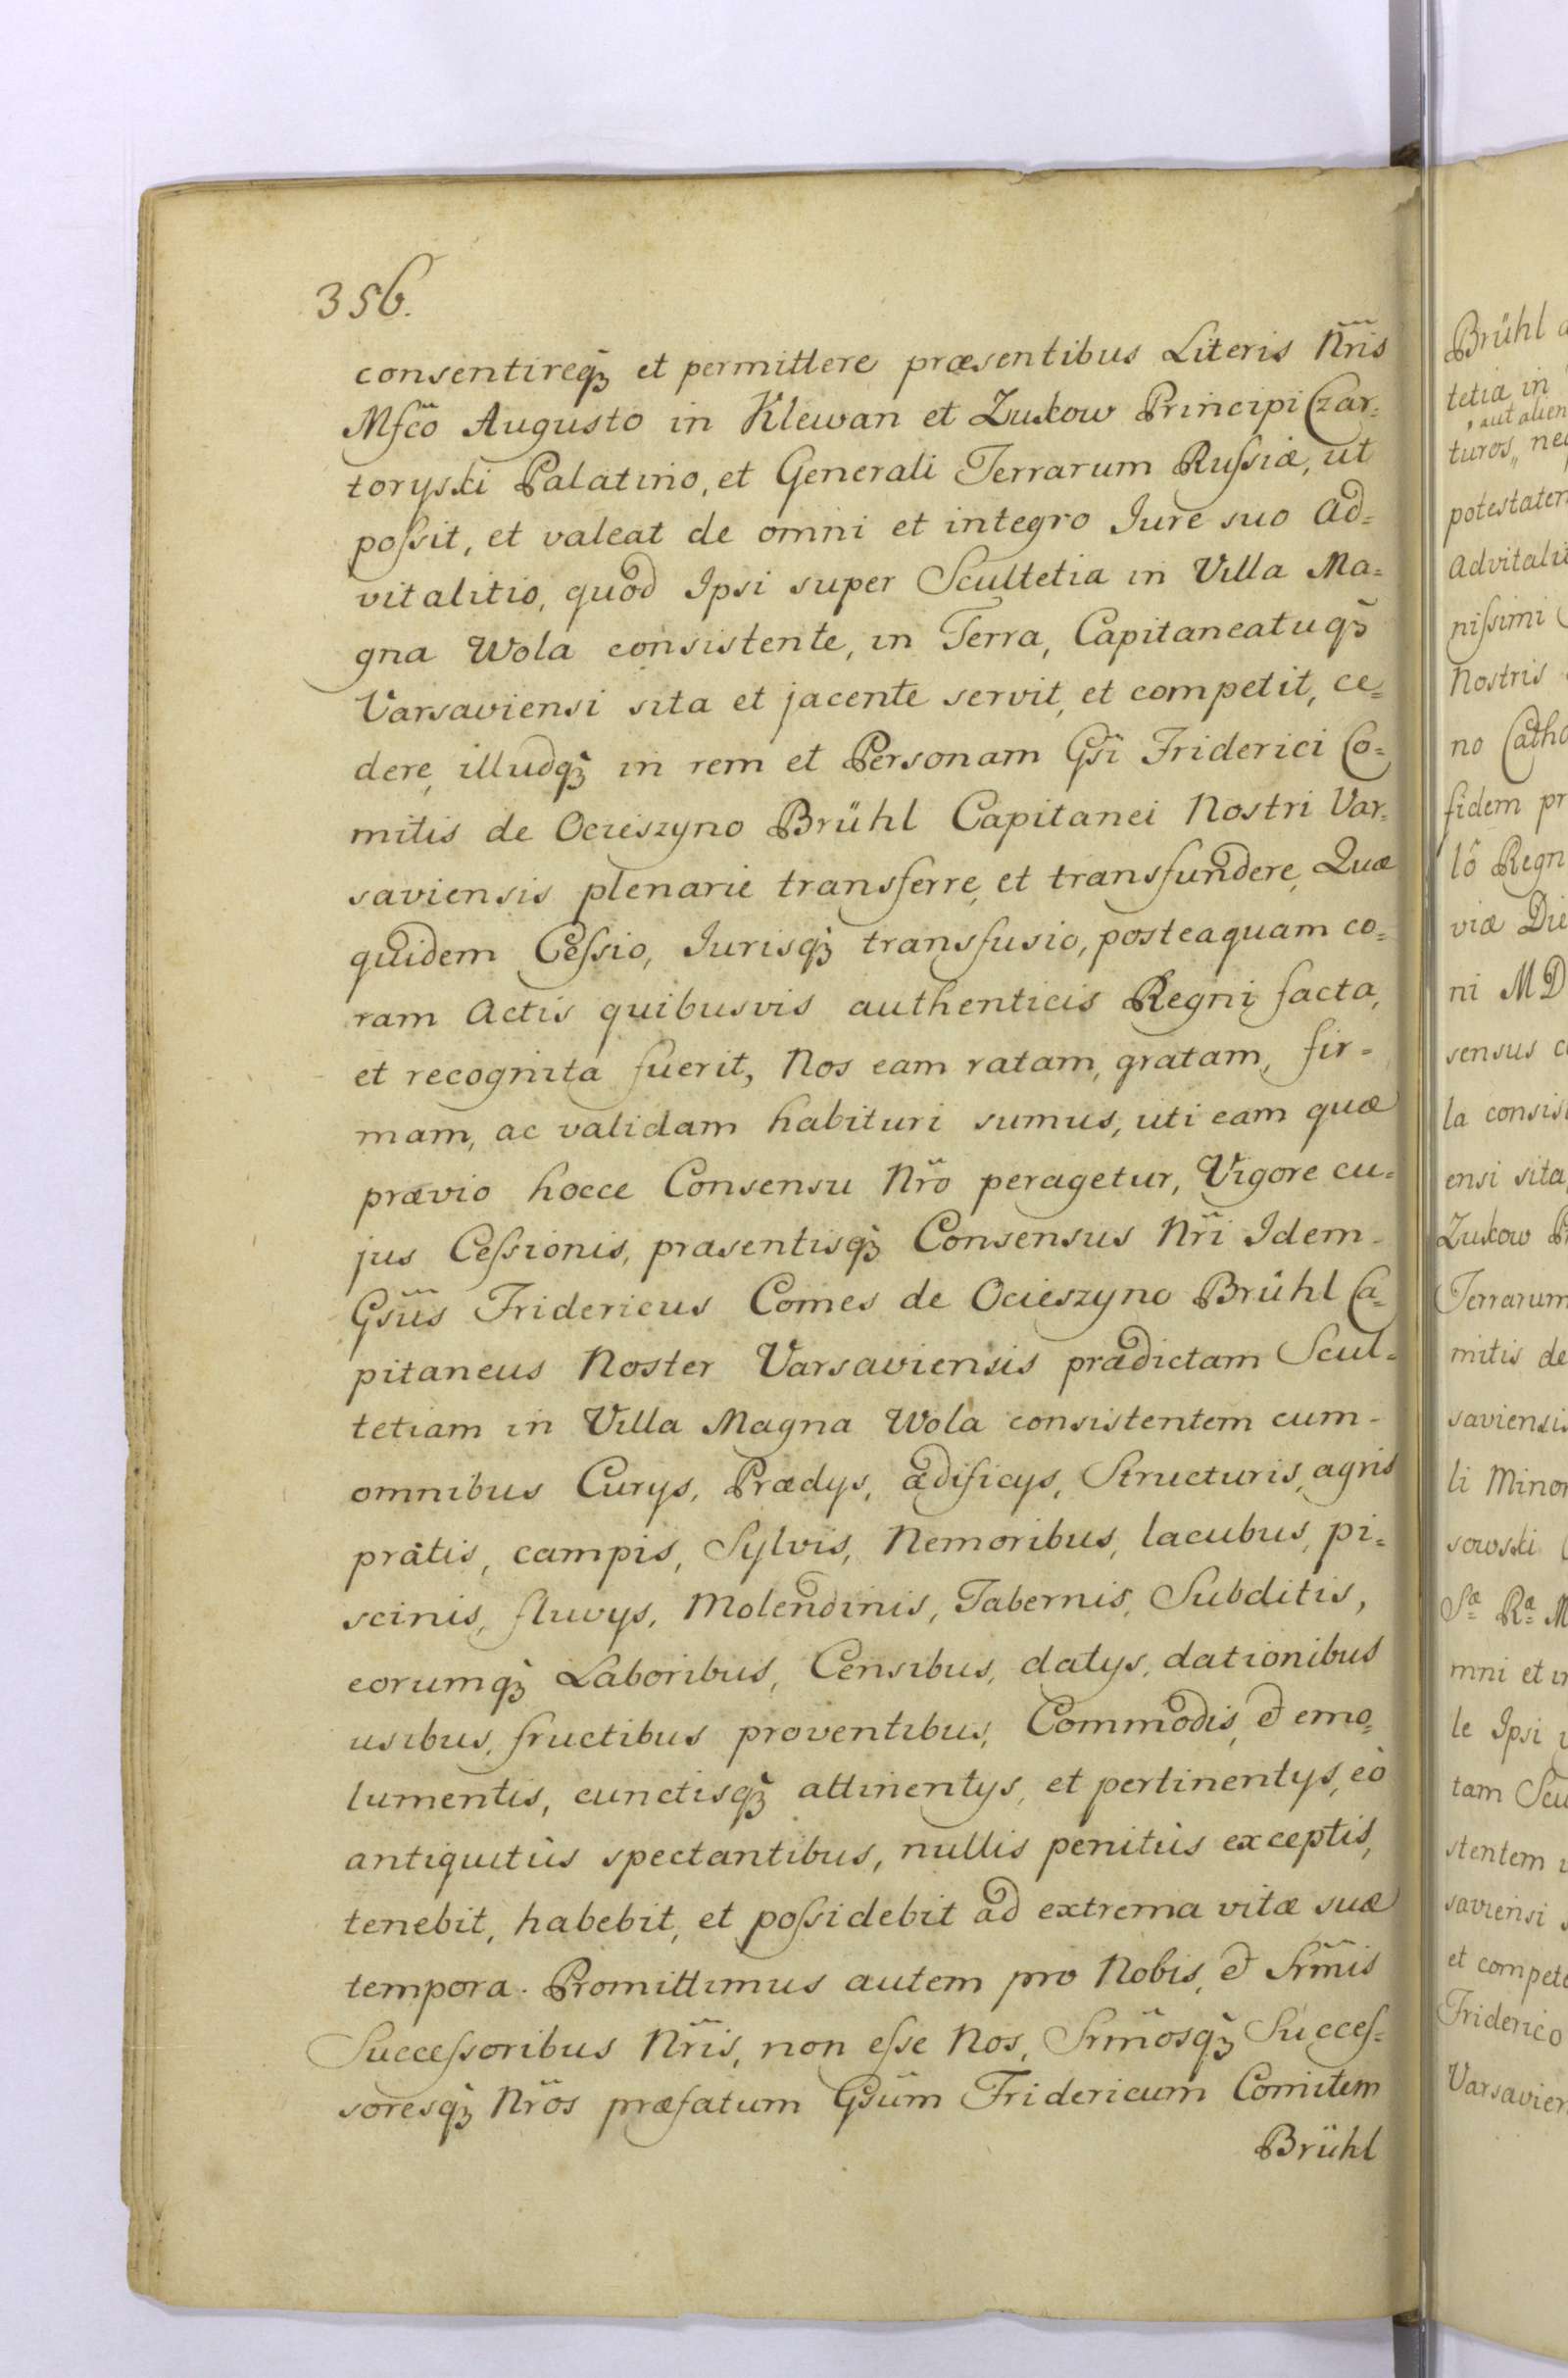 356.
consentireq̃ʒ et permittere præsentibus Literis Nr̃is
Mſc̃o Augusto in Klewan et Zukow Principi Czar=
toryski Palatino, et Generali Terrarum Rußiæ, ut
poßit, et valeat de omni et integro Jure suo Ad=
vitalitio, quod Ipsi super Scultetia in Villa Ma=
gna Wola consistente, in Terra, Capitaneatuq̃ʒ
Varsaviensi sita et jacente servit, et competit, ce=
dere, illudq̃ʒ in rem et Personam Gsi Friderici Co=
mitis de Ocieszyno Brühl Capitanei Nostri Var=
saviensis plenarie transferre, et transfundere, Quæ
quidem Ceßio, Jurisq̃ʒ transfusio, posteaquam co=
ram Actis quibusvis authenticis Regni facta,
et recognita fuerit, Nos eam ratam, gratam, fir=
mam, ac validam habituri sumus, uti eam quæ
prævio hocce Consensu Nr̃o peragetur, Vigore cu=
jus Ceßionis, præsentisq̃ʒ Consensus Nr̃i Idem-
Gsũs Fridericus Comes de Ocieszyno Brühl Ca=
pitaneus Noster Varsaviensis prædictam Scul=
tetiam in Villa Magna Wola consistentem cum-
omnibus Curys, Prædys, ædificys, Structuris, agris
prâtis, campis, Sylvis, Nemoribus, lacubus, pi=
scinis, fluvys, Molendinis, Tabernis, Subditis,
eorumq̃ʒ Laboribus, Censibus, datys, dationibus
usibus, fructibus proventibus, Commodis, et emo=
lumentis, cunctisq̃ʒ attinentys, et pertinentys, eò
antiquitùs spectantibus, nullis penitùs exceptis,
tenebit, habebit, et poßidebit ad extrema vitæ suæ
tempora. Promittimus autem pro Nobis, et Srm̃is
Succeßoribus Nr̃is, non eße Nos, Srm̃osq̃ʒ Succeſ=
soresq̃ʒ Nr̃os præfatum Gsũm Fridericum Comitem
Brühl
Brühl
tetia in
aut alien
turos, neq
potestatem
Advitali
nißimi
Nostris
no Catho
fidem pr
lô Regn
viæ Die
ni MD
sensus c
la consis
ensi sita
Zukow
Terrarum
mitis de
saviensis
li Minor
sowski
Sæ Ræ M
mni et i
le Ipsi
tam Scu
stentem
saviensi s
et compet
Friderico
Varsavien